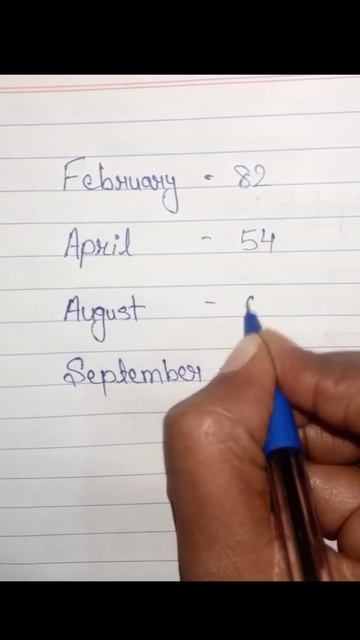 February - 82
April - 54
August -
September